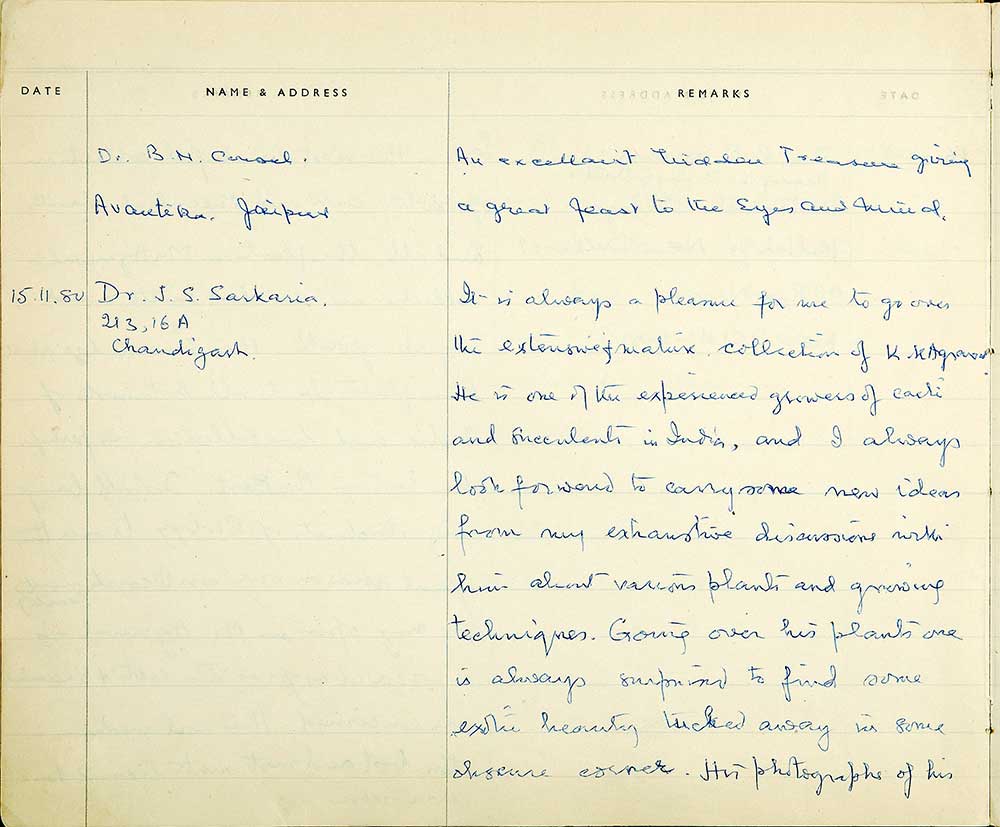 DATE NAME & ADDRESS REMARKS
Dr. B. N. An excellent hidden Treasure giving
Avantika. Jaipur a great feast to the Eyes and Mind.
15.11.80 Dr. J. S. Sarkaria. It is always a pleasure for me to go over
213, 16 A
Chandigarh. the extensive & mature collection of K. K Agrawal
He is one of the experienced growers of cacti
and succulents in India, and I always
look forward to carry some new ideas
from my exhaustive discussions with
him about various plants and growing
techniques. Going over his plants one
is always surprised to find some
exotic beauty tucked away in some
obscure corner. His photographs of his